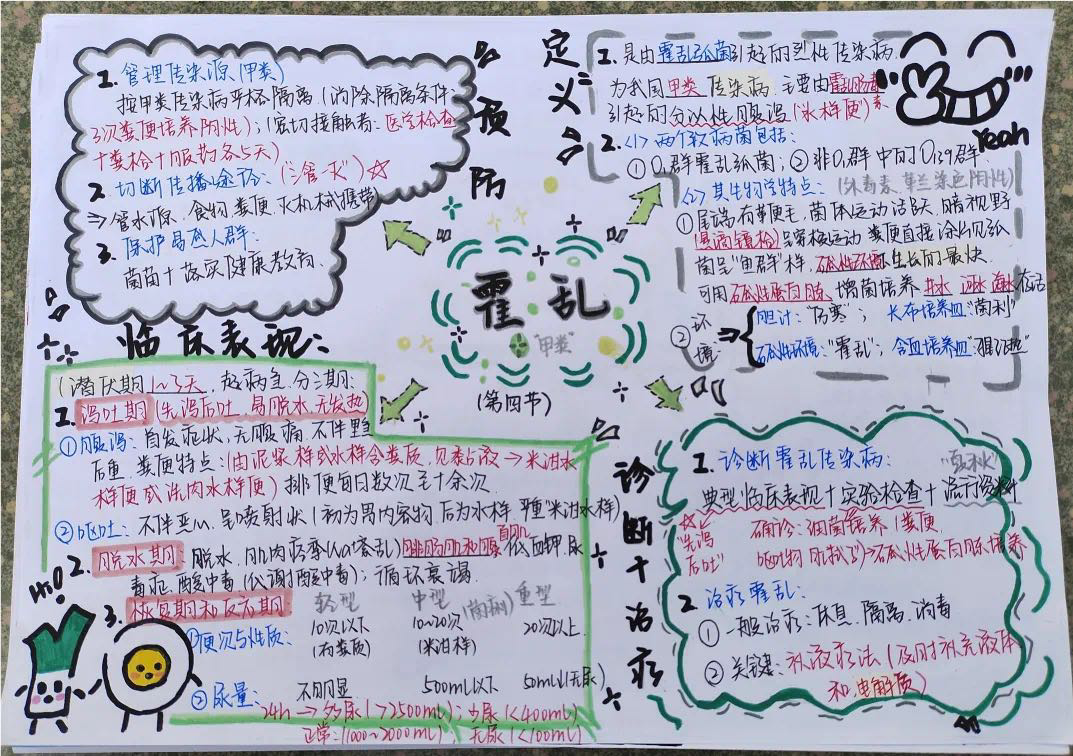 霍乱
"甲类"
(第四节)
预防
1. 管理传染源(甲类)
按甲类传染病严格隔离(消除隔离条件:
3次粪便培养阴性);(密切接触者:医学检查
+粪检+服药各5天)
2. 切断传播途径:("三管一灭")☆
⇒管水源、食物、粪便、灭机械携带
3. 保护易感人群:
菌苗+落实健康教育、
定义:
1. 是由霍乱弧菌引起的烈性传染病
为我国甲类传染病、主要由霍乱肠毒素
引起的分泌性腹泻(水样便)
Yeah
2. <1> 两个致病菌包括:
①O1群霍乱弧菌;②非O1群中的O139群、
<2> 其生物学特点:(外毒素、革兰染色阴性)
①尾端有鞭毛,菌体运动活跃、暗视野
(悬滴镜检)呈穿梭运动 粪便直接涂片见弧
菌呈"鱼群"样,碱性环境生长的最快、
可用碱性蛋白胨增菌培养 井水 河水 海水 存活
②环境⇒
胆汁:"伤寒"; 长布培养皿"菌利"
碱性环境:"霍乱";
临床表现:
(潜伏期1~3天、起病急、分三期:
1. 泻吐期(先泻后吐、易脱水、无发热)
①腹泻:首发症状,无腹痛、不伴里急
后重、粪便特点:(由泥浆样或水样含粪质、见黏液→米泔水
样便或洗肉水样便) 排便每日数次至十余次、
②呕吐:不伴恶心、呈喷射状(初为胃内容物、后为水样、严重"米泔水样)
2. 脱水期:脱水、肌肉痉挛(Na+紊乱) 腓肠肌和腹直肌(低血钾、尿
毒症、酸中毒(代谢酸中毒);循环衰竭、
3. 恢复期和反应期:
轻型 中型 (菌痢) 重型
①便次与性质: 10次以下 10~20次 20次以上
(有粪质) (米泔样)
②尿量: 不明显 500mL以下 50mL(无尿)
24h→多尿(>2500mL);少尿(<400mL)
正常:(1000~2000mL);无尿(<100mL)
Hi!
诊断+治疗
1. 诊断霍乱传染病:
"夏秋"
典型临床表现+实验检查+流行资料
☆"先泻后吐"
确诊:细菌培养(粪便
呕吐物、肛拭子)→碱性蛋白胨培养
2. 治疗霍乱:
①一般治疗:休息、隔离、消毒
②关键:补液疗法(及时补充液体
和电解质)